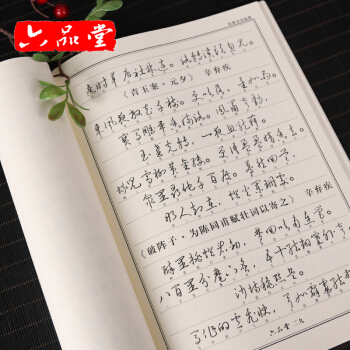 六品堂
旧时茅店社林边。路转溪桥忽见。
（青玉案·元夕）辛弃疾
东风夜放花千树。更吹落、星如雨。
宝马雕车香满路。凤箫声动，
玉壶光转，一夜鱼龙舞。
蛾儿雪柳黄金缕。笑语盈盈暗香去。
众里寻他千百度。蓦然回首，
那人却在，灯火阑珊处。
（破阵子·为陈同甫赋壮词以寄之）辛弃疾
醉里挑灯看剑，梦回吹角连营。
八百里分麾下炙，五十弦翻塞外声。
沙场秋点兵。
马作的卢飞快，弓如霹雳弦
六品堂